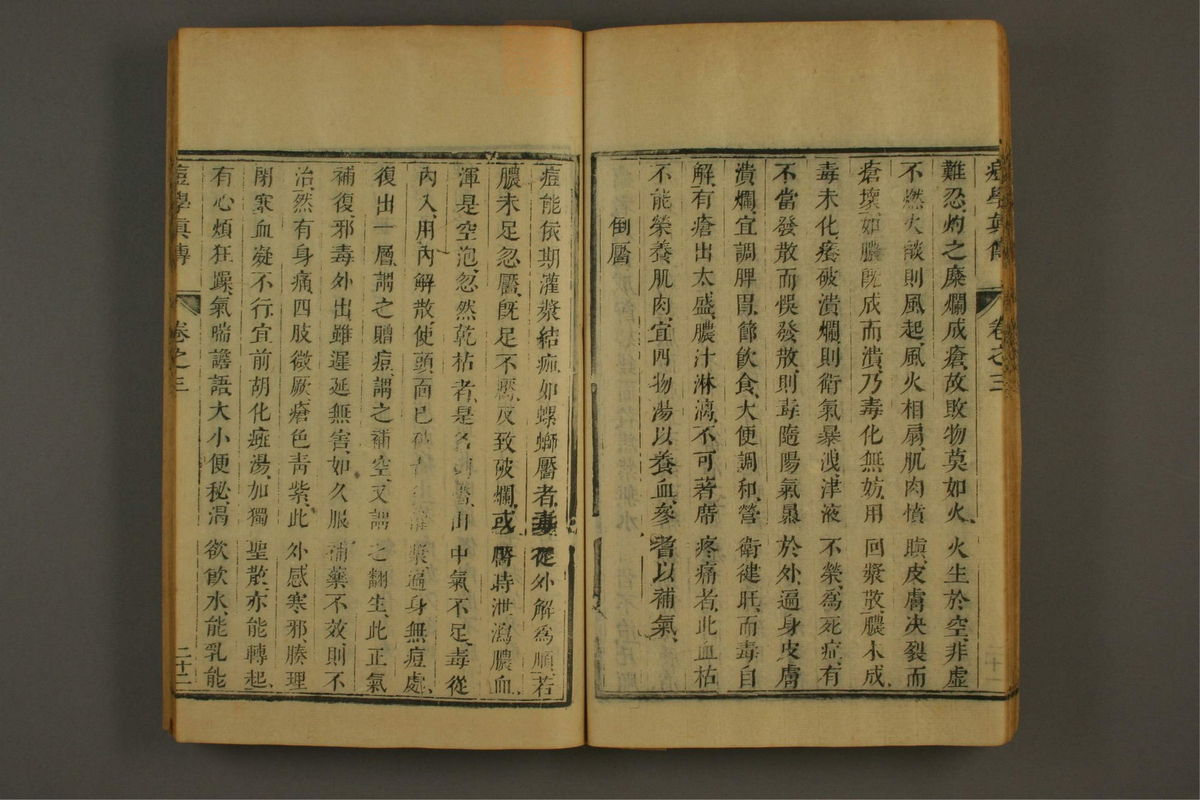 痘學真傳 卷之三
難忍灼之糜爛成瘡故敗物莫如火火生於空非虛
不燃火談則風起風火相扇肌肉憤瞋皮膚決裂而
瘡壞如膿旣成而潰乃毒化無妨用回漿散膿未成
毒未化瘡破潰爛則衛氣暴洩津液不榮爲死症有
不當發散而悞發散則毒隨陽氣暴於外遍身皮膚
潰爛宜調脾胃節飲食大便調和營衛健旺而毒自
解有瘡出太盛膿汁淋漓不可著席疼痛者此血枯
不能榮養肌肉宜四物湯以養血參耆以補氣
倒靨
痘能依期灌漿結痂如螺螄靨者毒從外解爲順若
膿未足忽靨旣足不靨反致破爛或靨時泄瀉膿血
渾是空泡忽然乾枯者是名倒靨由中氣不足毒從
內入用內解散使頭面已破者漿遍身無痘處
復出一層謂之贈痘謂之補空又謂之翻生此正氣
補復邪毒外出雖遲延無害如久服補藥不效則不
治然有身痛四肢微厥瘡色青紫此外感寒邪腠理
閉塞血凝不行宜前胡化癍湯加獨聖散亦能轉起
有心煩狂躁氣喘譫語大小便秘渴欲飲水能乳能
痘學真傳 卷之三 二十二